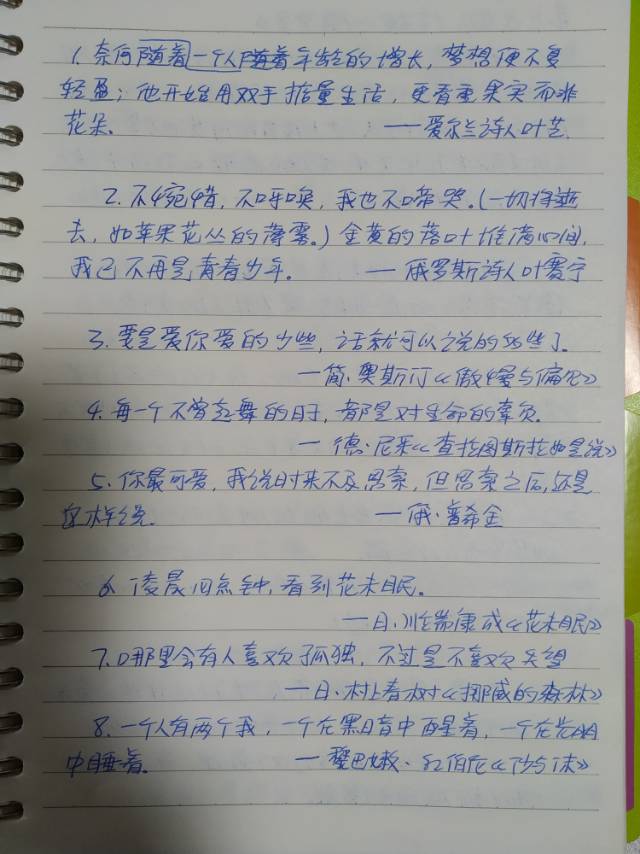 1. 奈何随着一个人随着年龄的增长，梦想便不复
轻盈；他开始用双手掂量生活，更看重果实而非
花朵。 ——爱尔兰诗人叶芝
2. 不惋惜，不呼唤，我也不啼哭。(一切将逝
去，如苹果花丛的薄雾。)金黄的落叶堆满心间，
我已不再是青春少年。 ——俄罗斯诗人叶赛宁
3. 要是爱你爱的少些，话就可以说的多些了。
—简·奥斯汀《傲慢与偏见》
4. 每一个不曾起舞的日子，都是对生命的辜负。
— 德·尼采《查拉图斯特拉如是说》
5. 你最可爱，我说时来不及思索，但思索之后，还是
这样说。 —俄·普希金
6. 凌晨四点钟，看到花未眠。
—日·川端康成《花未眠》
7. 哪里会有人喜欢孤独，不过是不喜欢失望
—日·村上春树《挪威的森林》
8. 一个人有两个我，一个在黑暗中醒着，一个在光明
中睡着。 — 黎巴嫩·纪伯伦《沙与沫》